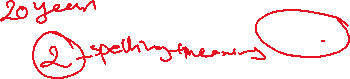 20 years
2 - spelling + meaning